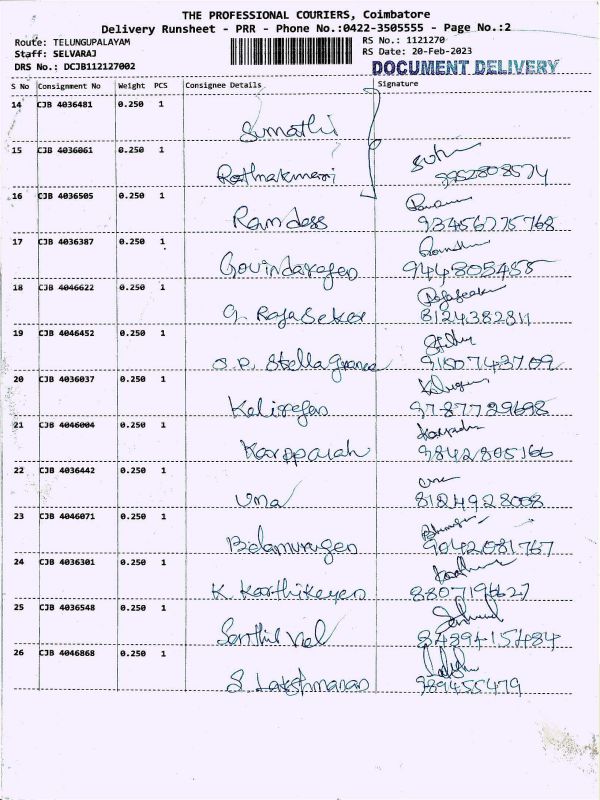 THE PROFESSIONAL COURIERS, Coimbatore
Delivery Runsheet - PRR - Phone No.:0422-3505555 - Page No.:2
Route: TELUNGUPALAYAM RS No.: 1121270
Staff: SELVARAJ RS Date: 20-Feb-2023
DRS No.: DCJB112127002 DOCUMENT DELIVERY
S No Consignment No Weight PCS Consignee Details Signature
14 CJB 4036481 0.250 1
Sumathi
15 CJB 4036061 0.250 1
Rathnakumari 9952808574
16 CJB 4036505 0.250 1
Ramdass 93456775768
17 CJB 4036387 0.250 1
Govindarajan 944805455
18 CJB 4046622 0.250 1
G. RajaSekar 8124382811
19 CJB 4046452 0.250 1
S.P. Stella 9150743709
20 CJB 4036037 0.250 1
Kalirajan 9787789698
21 CJB 4046004 0.250 1
Karppaiah 9842805166
22 CJB 4036442 0.250 1
Uma 8124928008
23 CJB 4046071 0.250 1
Balamurugan 9042081767
24 CJB 4036301 0.250 1
K. Karthikeyan 8807196627
25 CJB 4036548 0.250 1
Senthil Vel 8489415484
26 CJB 4046868 0.250 1
S. Lakshmanan 989455479